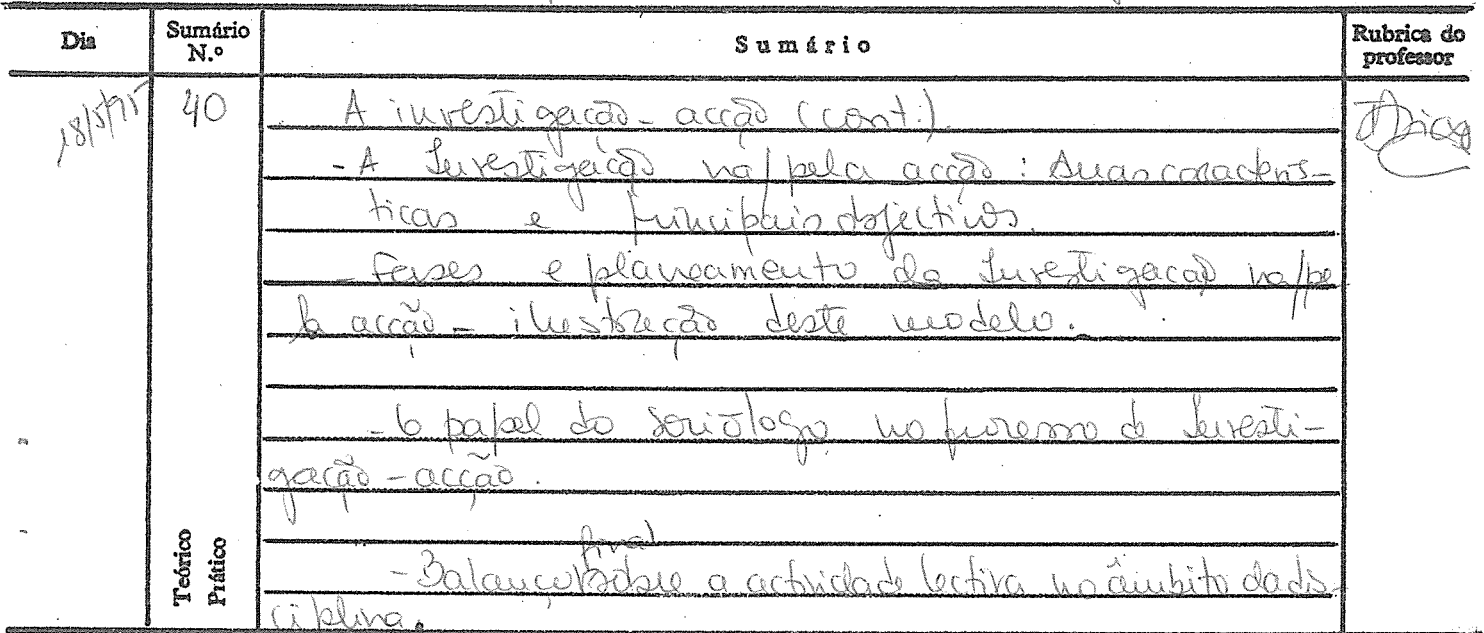 Dia
Sumário N.º
Sumário
Rubrica do professor
18/5/95
40
A investigação-acção (cont.)
- A Investigação na/pela acção: Suas caracterís-
ticas e principais objectivos.
- Fases e planeamento da Investigação na/pe
la acção - ilustração deste modelo.
- O papel do sociólogo no processo de Investi-
gação-acção.
Teórico
Prático
- Balanço final sobre a actividade lectiva no âmbito da dis-
ciplina.